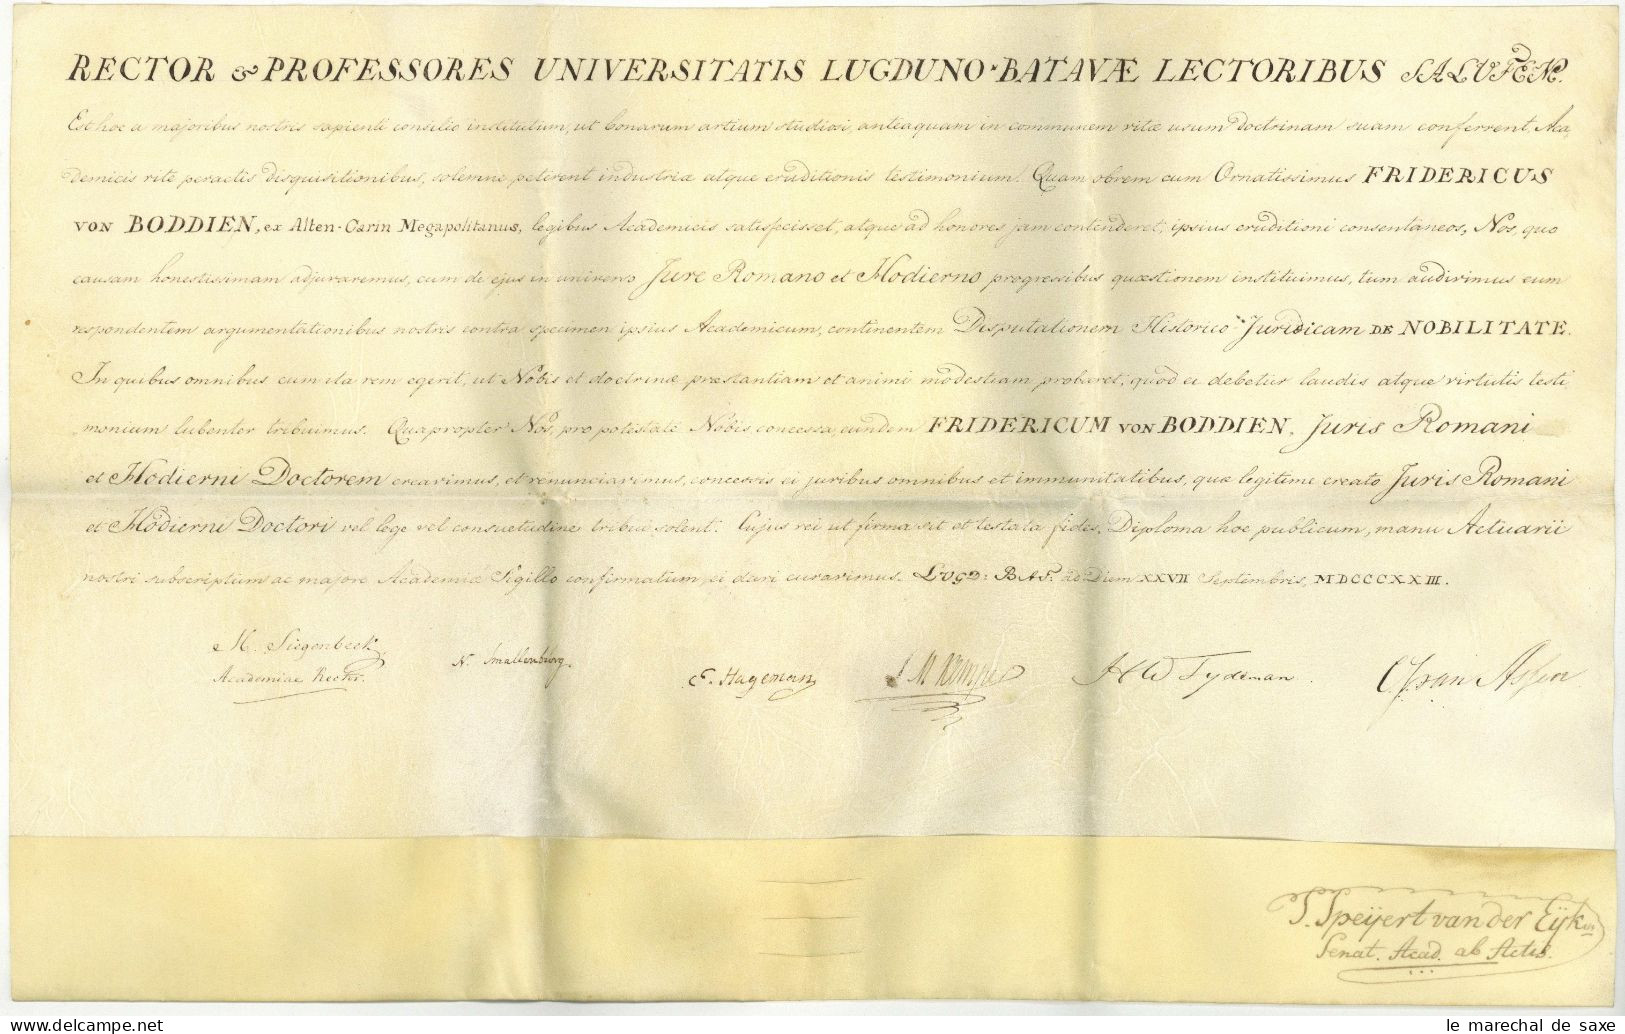 RECTOR & PROFESSORES UNIVERSITATIS LUGDUNO-BATAVÆ LECTORIBUS SALUTEM.
Est hoc a majoribus nostris sapienti consilio institutum, ut bonarum artium studiosi, antequam in communem vitæ usum doctrinam suam conferrent, Aca,
demicis rite peractis disquisitionibus, solemne peterent industriæ atque eruditionis testimonium. Quam obrem cum Ornatissimus FRIDERICUS
VON BODDIEN, ex Alten-Carin Megapolitanus, legibus Academicis satisfecisset, atque ad honores jam contenderet, ipsius eruditioni consentaneos, Nos, quo
causam honestissimam adjuvaremus, cum de ejus in universo Jure Romano et Hodierno progressibus quæstionem instituimus, tum audivimus eum
respondentem argumentationibus nostris contra specimen ipsius Academicum, continentem Disputationem Historico-Juridicam DE NOBILITATE.
In quibus omnibus cum ita rem egerit, ut Nobis et doctrinæ præstantiam et animi modestiam probaret, quod ei debetur laudis atque virtutis testi
monium lubenter tribuimus. Quapropter Nos, pro potestate Nobis concessa, eundem FRIDERICUM VON BODDIEN, Juris Romani
et Hodierni Doctorem creavimus, et renunciavimus, concessis ei juribus omnibus et immunitatibus, quæ legitime creato Juris Romani
et Hodierni Doctori vel lege vel consuetudine tribui solent. Cujus rei ut firma sit et testata fides, Diploma hoc publicum, manu Actuarii
nostri subscriptum ac majore Academiæ Sigillo confirmatum ei dari curavimus. LUGD: BAT. ad Diem XXVII Septembris, MDCCCXXIII.
M. Siegenbeek, N. Smallenburg. E. Hageman J M Kemper H W Tydeman. C J van Assen
Academiae Rector.
P. Speijert van der Eijk
Senat. Acad. ab Actis.
le marechal de saxe
www.delcampe.net